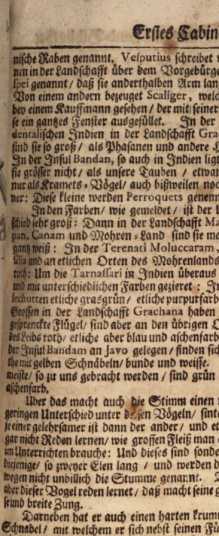 Erstes Cabin
nische Raben genannt. Vesputius schreibet
nen in der Landschafft über dem Vorgebürge
bei genannt / daß sie anderthalben Arm lan
Von einem andern bezeuget Scaliger, welc
bey einem Kauffmann gesehen / der mit seiner
se ein gantzes Fenster ausgefüllet. In der
dentalischen Indien in der Landschafft Gra
sind sie so groß / als Phasanen und andere
In der Insul Bandan, so auch in Indien ligt
sie grösser nicht / als unsere Tauben / etwan
nur als Kramets-Vögel / auch bißweilen noc
ner: Diese kleine werden Perroquets genenn
In den Farben / wie gemeldet / ist der
schied sehr groß: Dann in der Landschafft Ma
pan, Canam und Mohren-Land sind sie
gantz weiß: In der Terenati Moluccaram
und an etlichen Orten des Mohrenlands
roth: Um die Tarnassari in Indien überaus
und mit unterschiedlichen Farben gezieret:
etliche grasgrün / etliche purpurfarb
Grossen in der Landschafft Grachana haben
gesprenckte Flügel / sind aber an den übrigen
des Leibs roth / etliche aber blau und aschenfarb
der Insul Bandam an Javo gelegen / finden sich
die mit gelben Schnäbeln / bunde und weisse.
/ so zu uns gebracht werden / sind grün
aschenfarb.
Uber das macht auch die Stimm einen
geringen Unterschied unter diesen Vögeln / sinte
einer gelehrsamer ist dann der ander / und et
gar nicht Reden lernen / wie grossen Fleiß man
Unterrichten brauche: Und dieses sind sonde
diejenige / so zweyer Elen lang / und werden
wegen nicht unbillich die Stumme genannt.
aber dieser Vogel reden lernet / daß macht seine
und breite Zung.
Darneben hat er auch einen harten krum
Schnabel / mit welchem er sich nebst seinen Fü